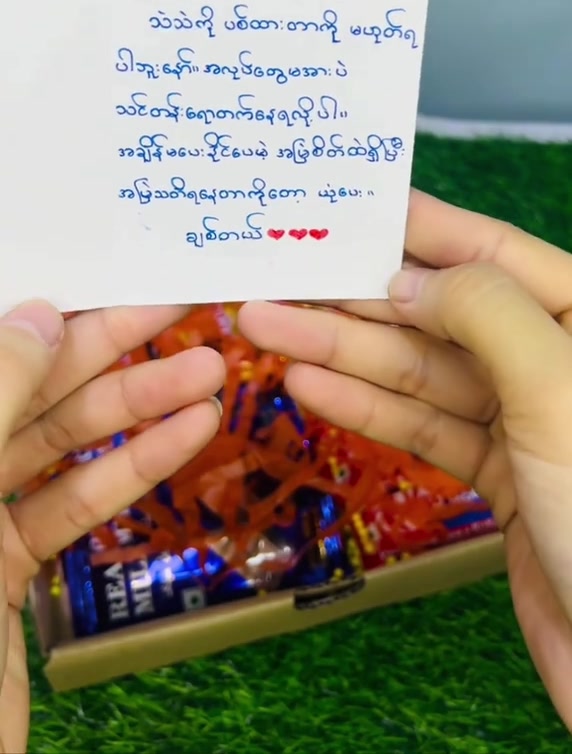 သဲသဲကို ပစ်ထားတာကို မဟုတ်ရ
ပါဘူးနော်။ အလုပ်တွေမအားပဲ
သင်တန်းရောတက်နေရလို့ပါ။
အချိန်မပေးနိုင်ပေမဲ့ အမြဲစိတ်ထဲရှိပြီး
အမြဲသတိရနေတာကိုတော့ ယုံပေး။
ချစ်တယ်❤❤❤
REA
MIL